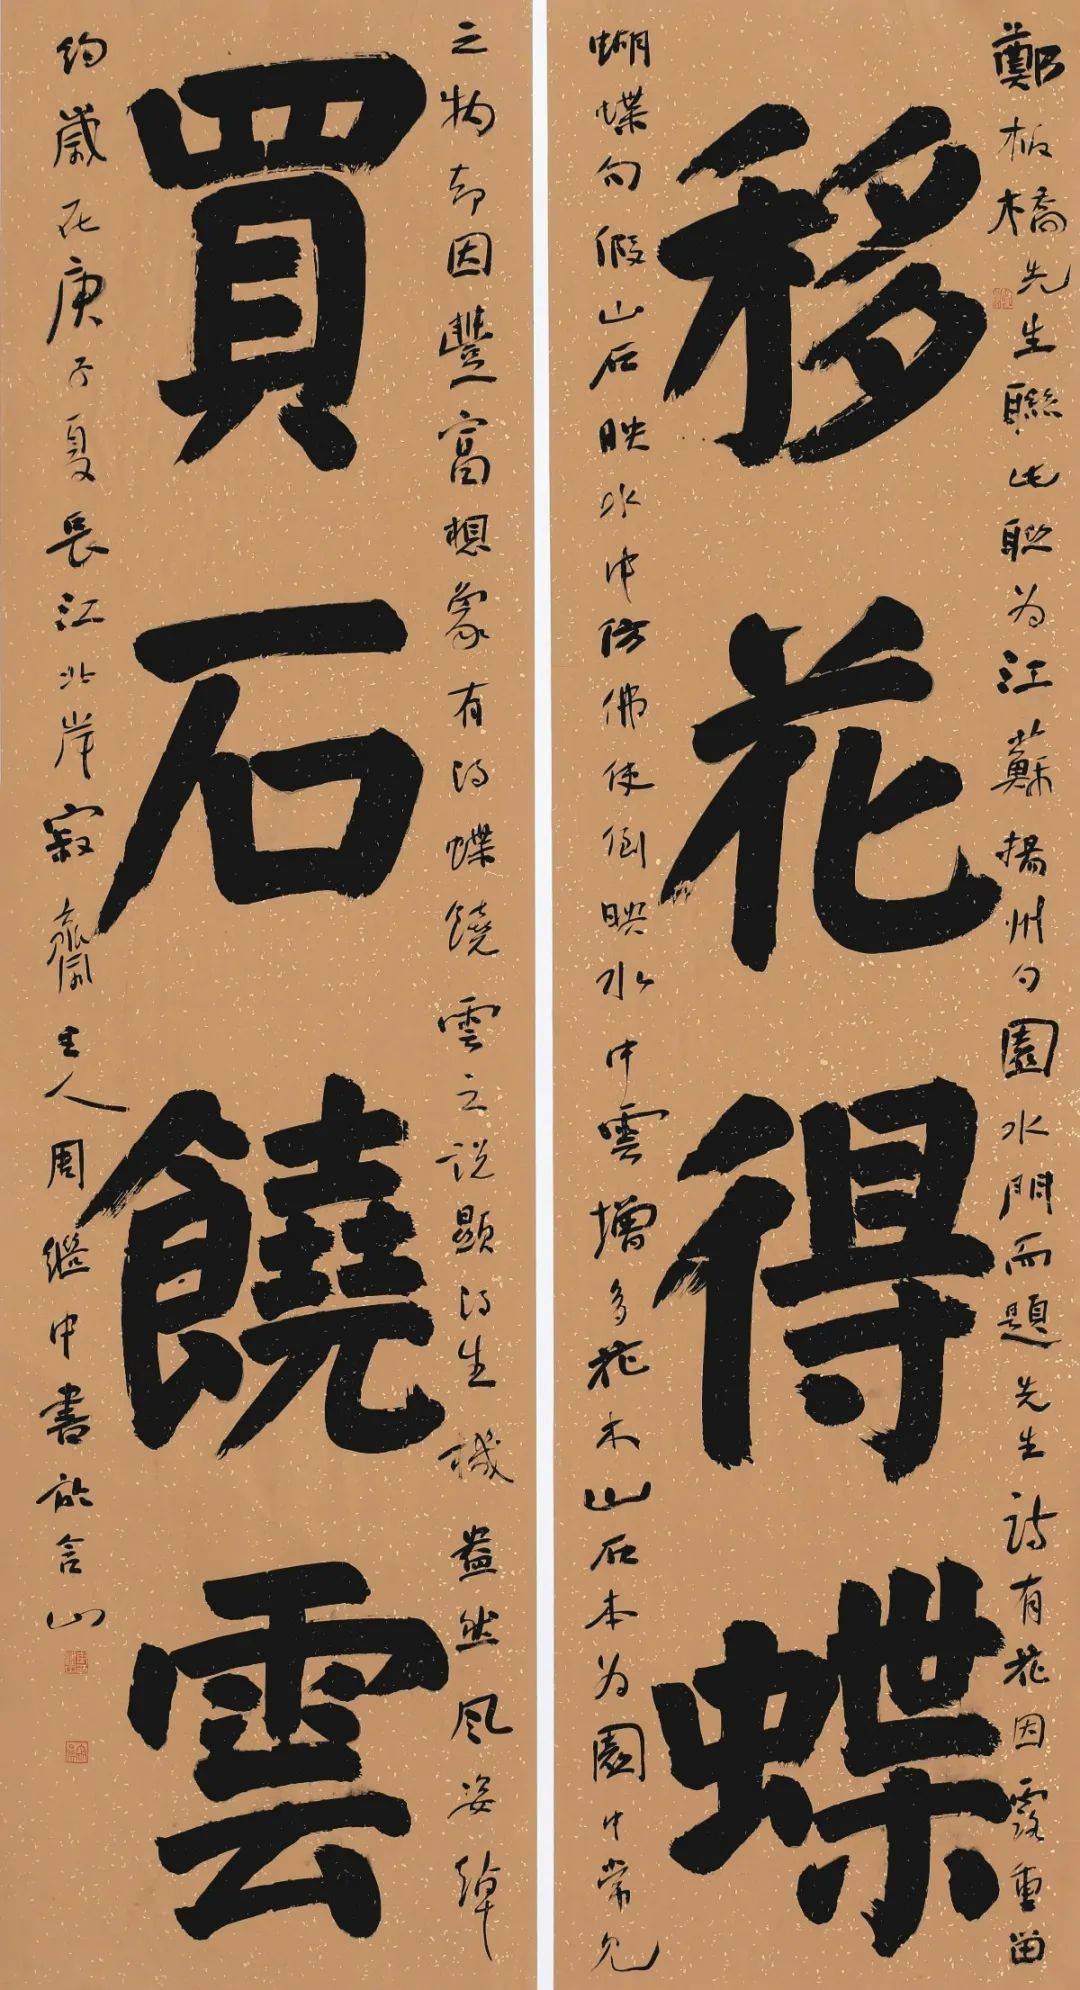 鄭板橋先生聯此联为江蘇揚州勺園水門而題先生詩有花因露重留
移花得蝶
蝴蝶句假山石映水中仿佛使倒映水中雲增多花木山石本为園中常见
之物却因豐富想象有得蝶饒雲之说顯得生機盎然风姿绰
買石饒雲
约歲在庚子夏長江北岸寂齋主人周繼中書於含山